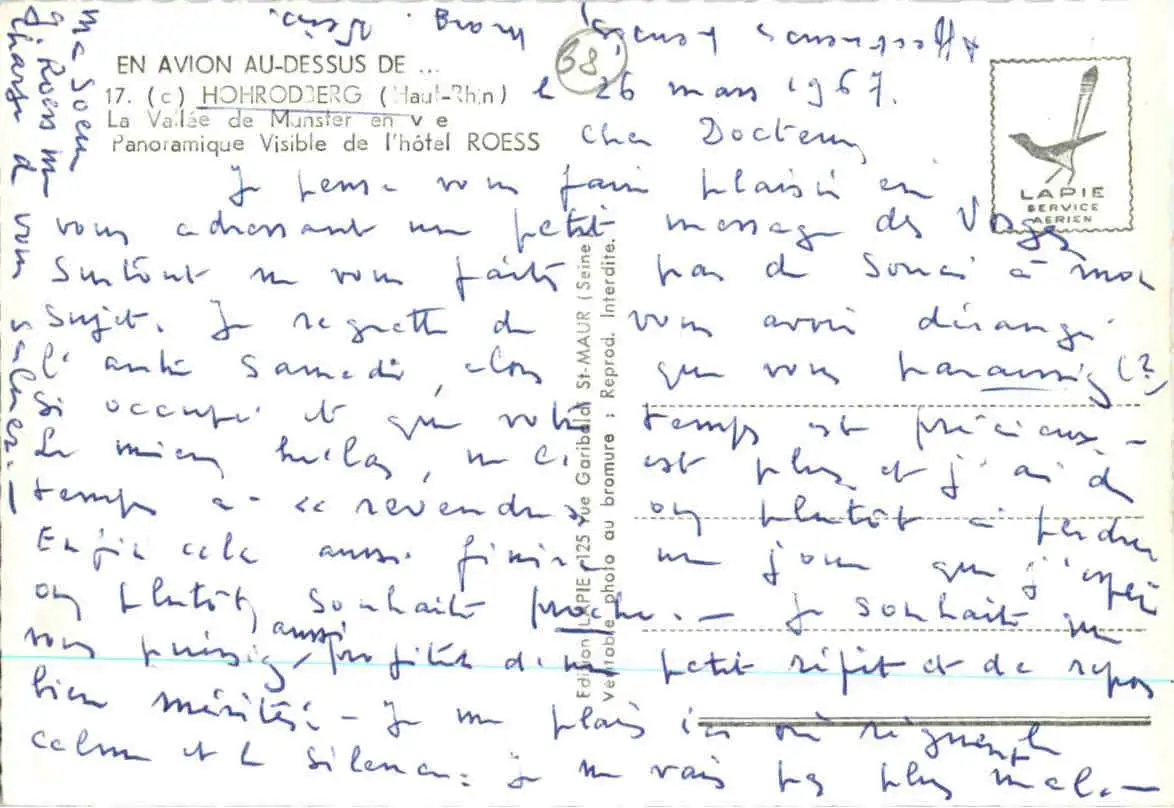 EN AVION AU-DESSUS DE ...
17. (c) HOHRODBERG (Haut-Rhin)
La Vallée de Munster en v e
Panoramique Visible de l'hôtel ROESS
B8
LAPIE
SERVICE
AERIEN
le 26 mars 1967.
Cher Docteur,
Je pense vous faire plaisir en
vous adressant un petit message des Vosges
Surtout ne vous faites pas de souci à mon
sujet. Je regrette de vous avoir dérangé
l'autre Samedi, alors que vous paraissiez (?)
si occupé et que votre temps est précieux -
Le mien hélas, ne l'est plus et j'ai du
temps à « revendre » ou plutôt à perdre
Enfin cela aussi finira un jour que j'espère
ou plutôt souhaite proche. - Je souhaite que
vous puissiez aussi profiter d'un petit répit et de repos
bien mérités - Je me plais ici où règnent le
calme et le silence: je ne vais pas plus mal. -
Ma soeur
G. Roess me
charge de
vous
saluer. -
Edition LAPIE 125 rue Garibaldi St-MAUR (Seine
Véritable photo au bromure : Reprod. Interdite.